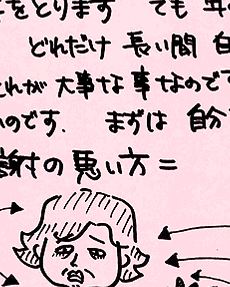 をとります ても 年の
どれだけ 長い間 自
れが 大事な事なのでで
のです. まずは 自分
謝すの 悪い方 =